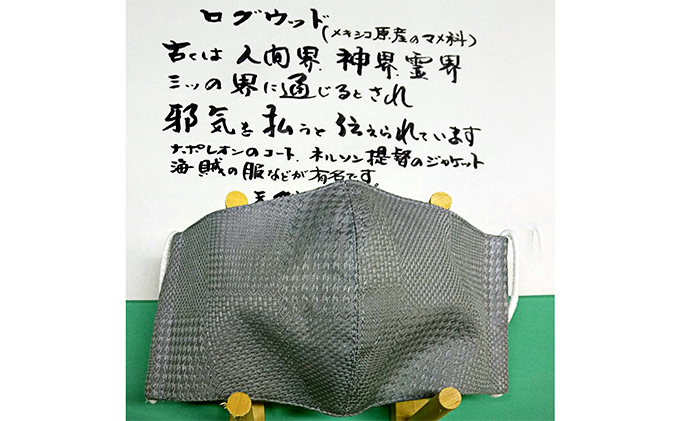 ログウッド(メキシコ原産のマメ科)
古くは 人間界、神界、霊界
三ッの界に通じるとされ
邪気を払うと伝えられています
ナポレオンのコート、ネルソン提督のジャケット
海賊の服などが有名です。